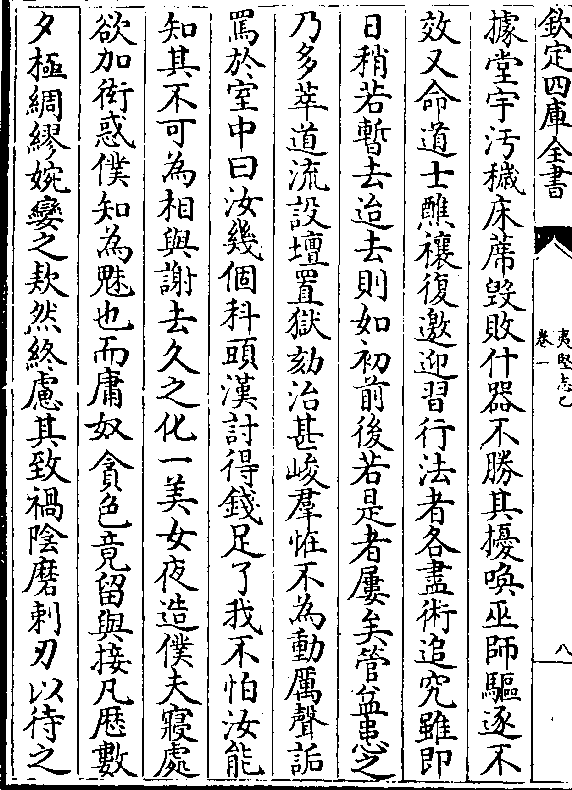 欽定四庫全書
夷堅志乙
卷一
八
據堂宇汚穢床蓆毀敗什器不勝其擾喚巫師驅逐不
效又命道士醮禳復邀迎習行法者各盡術追究雖即
日稍若暫去迨去則如初前後若是者屢矣管益患之
乃多萃道流設壇置獄劾治甚峻羣怪不為動厲聲詬
罵於室中曰汝幾個科頭漢討得錢足了我不怕汝能
知其不可為相與謝去久之化一美女夜造僕夫寢處
欲加衒惑僕知為魅也而庸奴貪色竟留與接凡歴數
夕極綢繆婉孌之欵然終慮其致禍陰磨剌刃以待之